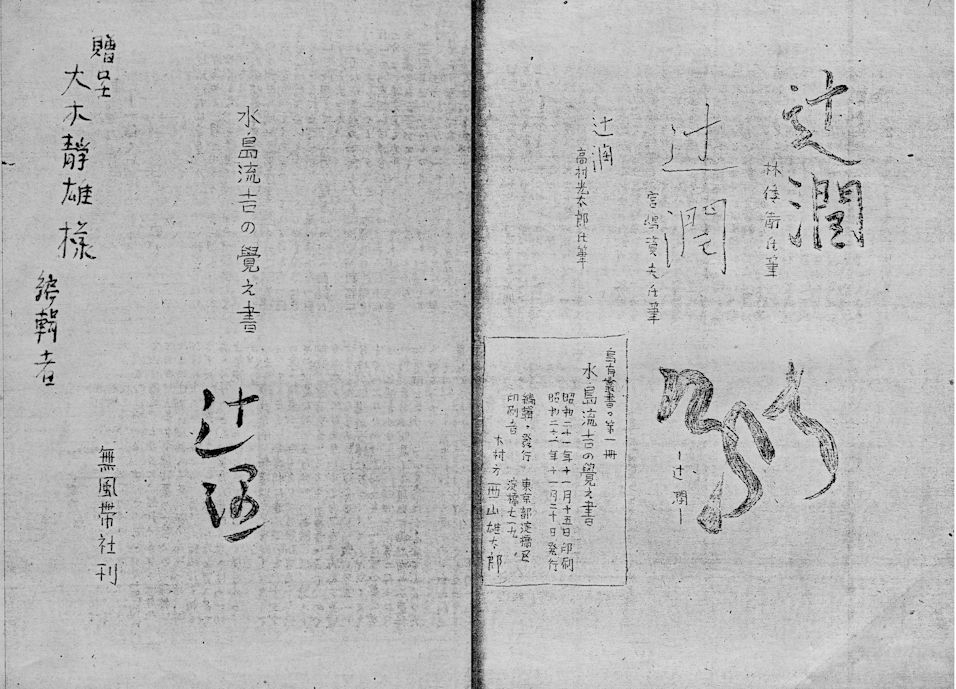 辻潤
林倭衛氏筆
辻潤
宮嶋資夫氏筆
辻潤
高村光太郎氏筆
―辻潤―
烏有叢書の第一冊
水島流吉の覺え書
昭和二十一年十一月十五日印刷
昭和二十一年十一月二十日発行
編輯・発行 東京都淀橋区
印刷者 淀橋七一九
木村方 西山雄太郎
水島流吉の覺え書
辻潤
無風帯社刊
贈呈
大木靜雄様
編輯者